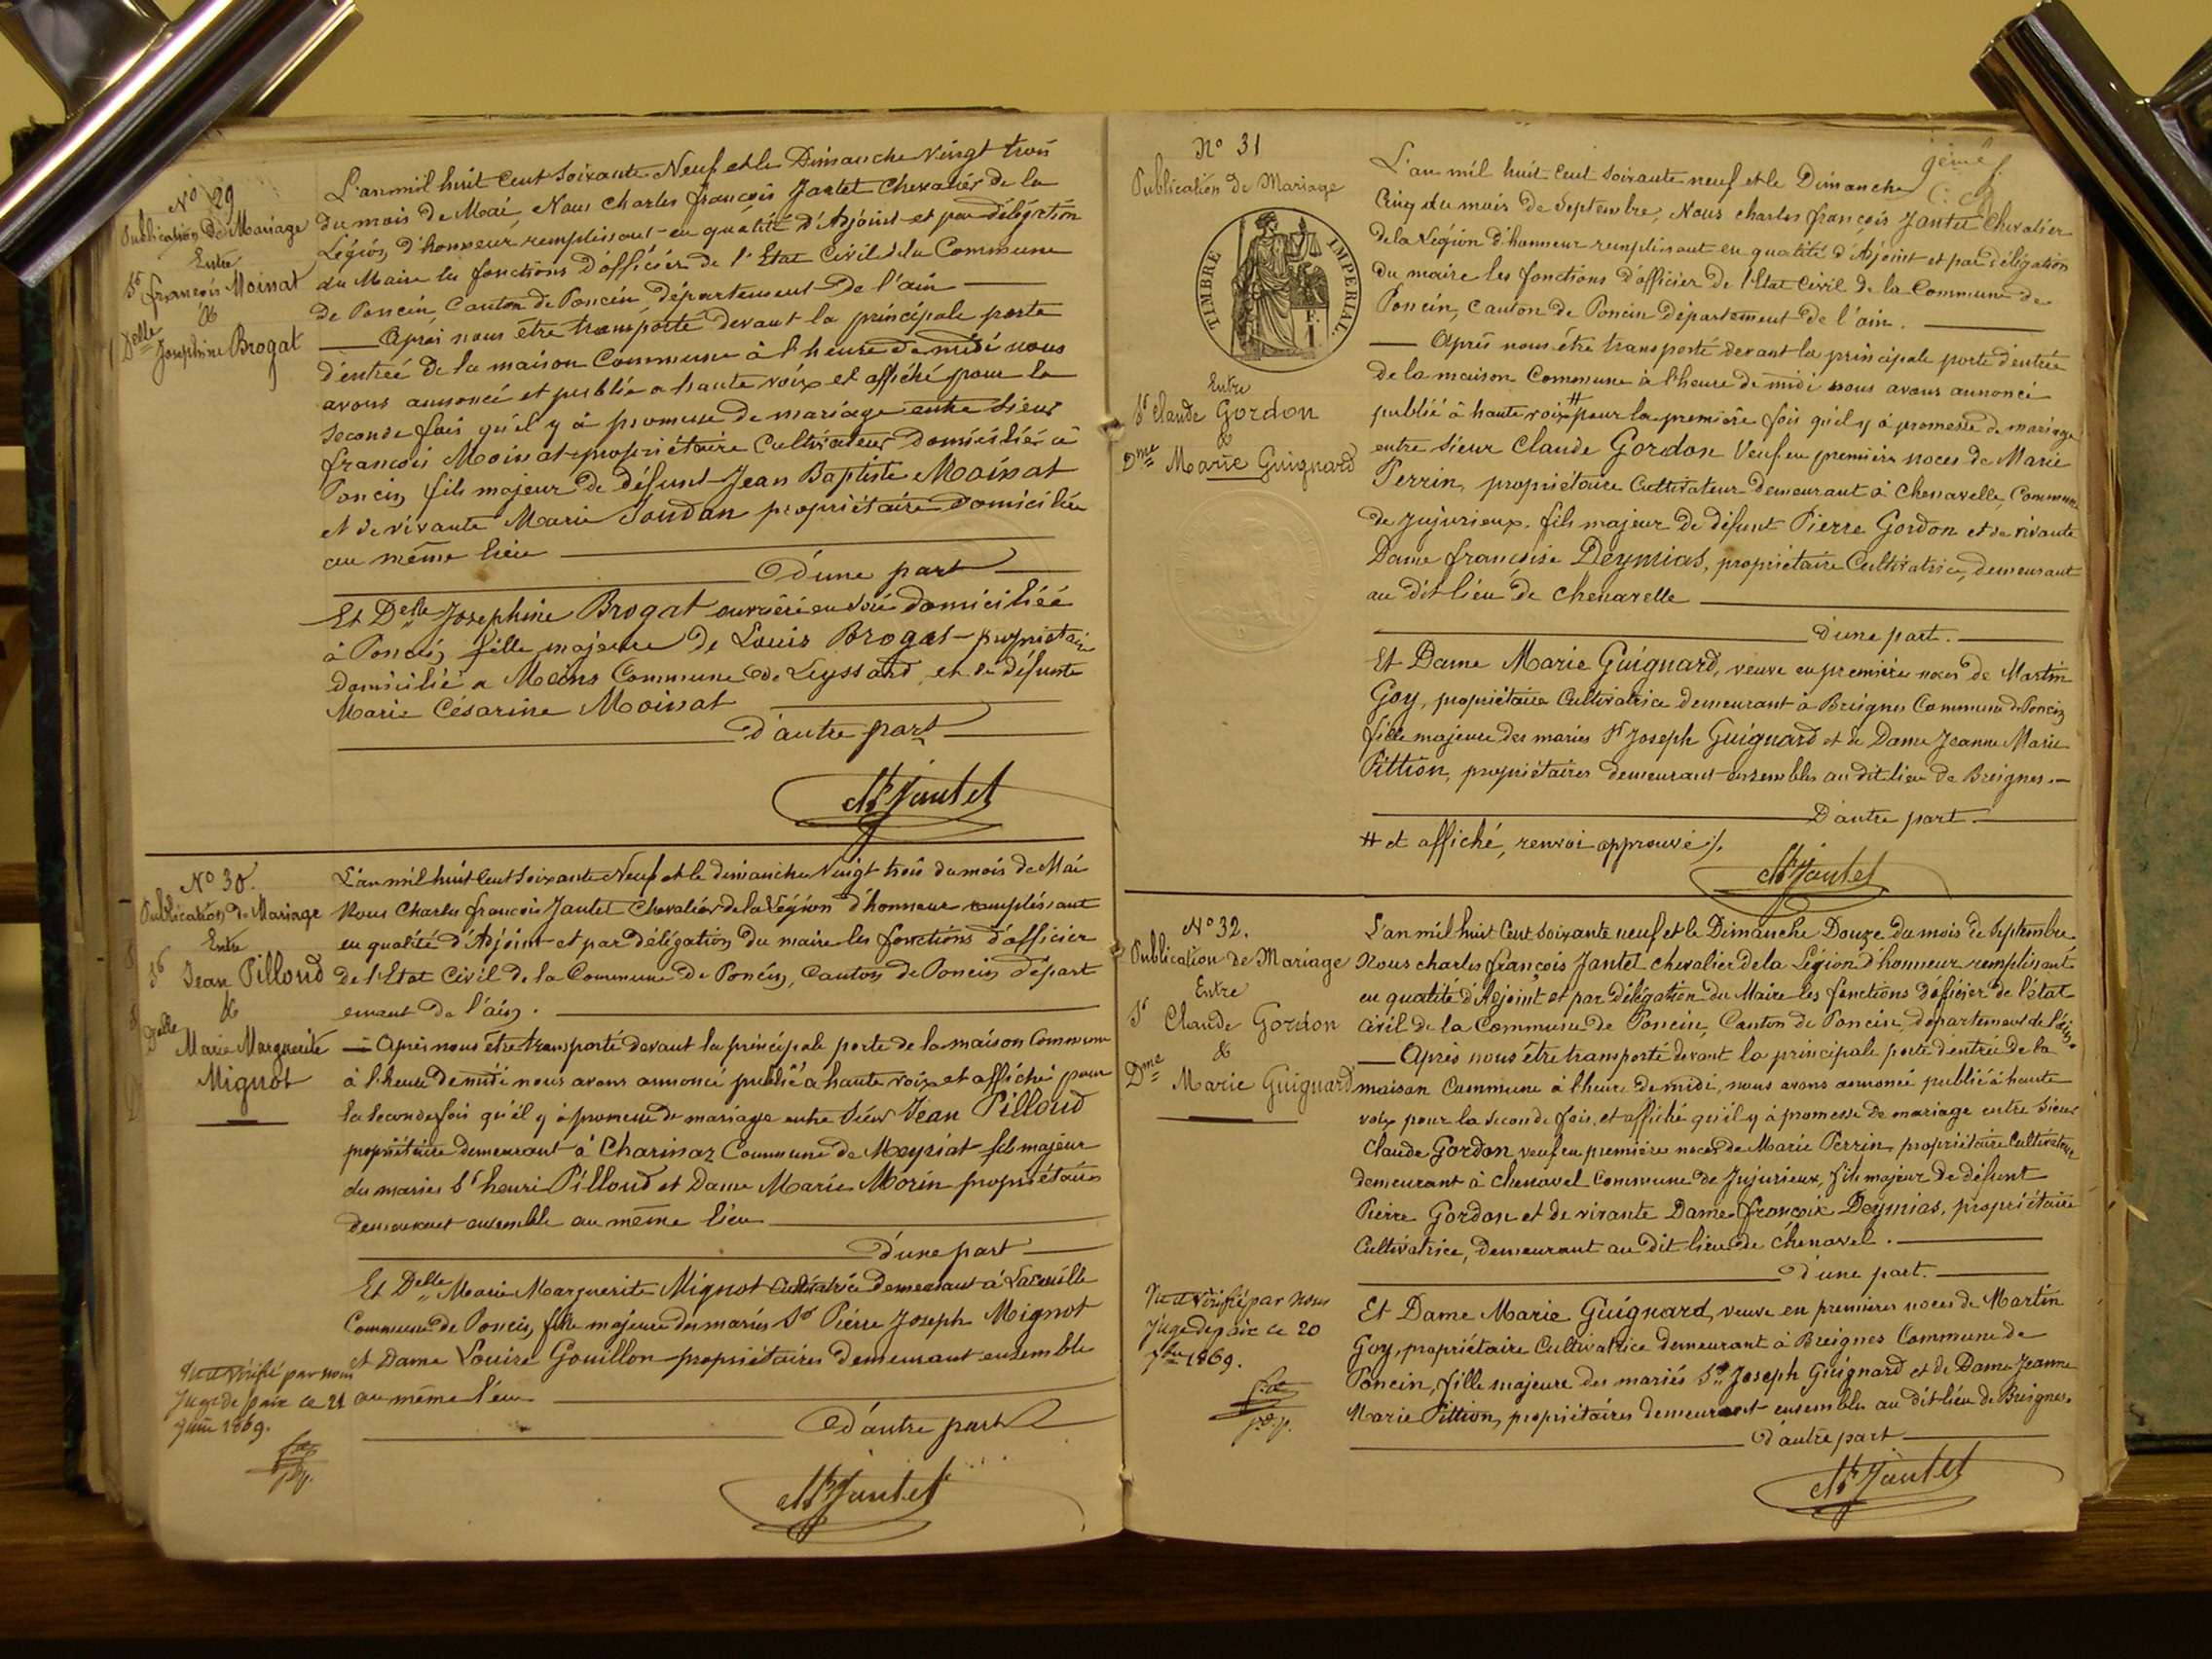 N° 29
Publication de Mariage
Entre
Sr françois Moinat
&
Delle Josephine Brogat
L'an mil huit Cent soixante Neuf et le Dimanche vingt trois
du mois de Mai, Nous Charles françois Jantet Chevalier de la
Légion d'honneur remplissant en qualité d'Adjoint et par délégation
du Maire les fonctions d'officier de l'Etat Civil de la Commune
de Poncin, Canton de Poncin, département de l'ain
Après nous être transporté devant la principale porte
d'entrée de la maison Commune à l'heure de midi nous
avons annoncé et publié a haute voix et affiché pour la
seconde fois qu'il y à promesse de mariage entre sieur
françois Moinat propriétaire Cultivateur domicilié à
Poncin, fils majeur de défunt Jean Baptiste Moinat
et de vivante Marie Soudan propriétaire domiciliée
au même lieu
D'une part
Et Delle Josephine Brogat ouvrière en soie domiciliée
à Poncin, fille majeure de Louis Brogat propriétaire
domicilié a Moins Commune de Leyssard, et de défunte
Marie Césarine Moinat
d'autre part
Ch Jantet
N° 30.
Publication de Mariage
Entre
Sr
Jean Pilloud
&
Delle
Marie Marguerite
Mignot
L'an mil huit Cent soixante Neuf et le dimanche Vingt trois du mois de Mai
Nous Charles françois Jantet Chevalier de la Légion d'honneur remplissant
en qualité d'Adjoint et par délégation du maire les fonctions d'officier
de l'Etat Civil de la Commune de Poncin, Canton de Poncin départ
ement de l'ain.
Après nous être transporté devant la principale porte de la maison Commune
à l'heure de midi nous avons annoncé publié a haute voix et affiché pour
la seconde fois qu'il y à promesse de mariage entre sieur Jean Pilloud
propriétaire demeurant à Charinaz Commune de Meyriat fils majeur
des mariés Sr henri Pilloud et Dame Marie Morin propriétaires
demeurant ensemble au même lieu
d'une part
Et Delle Marie Marguerite Mignot Cultivatrice demeurant à
Commune de Poncin, fille majeure des mariés Sr Pierre Joseph Mignot
et Dame Louise Gouillon propriétaires demeurant ensemble
au même lieu
d'autre part
Vu et vérifié par nous
Juge de paix ce 21
Juin 1869.
Ch Jantet
N° 31
Publication de Mariage
TIMBRE IMPERIAL.
Entre
Sr Claude Gordon
&
Dme Marie Guignard
9ème f.
L'an mil huit Cent soixante neuf et le Dimanche
Cinq du mois de Septembre, Nous charles françois Jantet Chevalier
de la Légion d'honneur remplissant en qualité d'Adjoint et par délégation
du maire les fonctions d'officier de l'Etat Civil de la Commune de
Poncin, Canton de Poncin Département de l'ain.
Après nous être transporté devant la principale porte d'entrée
de la maison Commune à l'heure de midi nous avons annoncé
publié à haute voix # pour la première fois qu'il y à promesse de mariage
entre sieur Claude Gordon Veuf en première noces de Marie
Perrin, propriétaire Cultivateur demeurant à Chenavelle, Commune
de Jujurieux, fils majeur de défunt Pierre Gordon et de vivante
Dame françoise Deymias, propriétaire Cultivatrice, demeurant
au dit lieu de Chenavelle
d'une part.
Et Dame Marie Guignard, veuve en première noces de Martin
Goy, propriétaire Cultivatrice demeurant à Breignes Commune de Poncin
fille majeure des mariés Sr Joseph Guignard et de Dame Jeanne Marie
Pittion, propriétaires demeurant ensembles au dit lieu de Breignes.
D'autre part.
# et affiché, renvoi approuvé ./.
Ch Jantet
N° 32.
Publication de Mariage
Entre
Sr
Claude Gordon
&
Dme
Marie Guignard
L'an mil huit Cent soixante neuf et le Dimanche Douze du mois de Septembre
Nous charles françois Jantet chevalier de la Légion d'honneur remplissant
en qualité d'Adjoint et par délégation du Maire les fonctions d'officier de l'état
Civil de la Commune de Poncin, Canton de Poncin, département de l'ain.
Après nous être transporté devant la principale porte d'entrée de la
maison Commune à l'heure de midi, nous avons annoncé publié à haute
voix pour la seconde fois, et affiché qu'il y à promesse de mariage entre sieur
Claude Gordon veuf en premières noces de Marie Perrin, propriétaire Cultivateur
demeurant à Chenavel Commune de Jujurieux, fils majeur de défunt
Pierre Gordon et de vivante Dame françoise Deymias, propriétaire
Cultivatrice, demeurant au dit lieu de Chenavel.
d'une part.
Et Dame Marie Guignard, veuve en premières noces de Martin
Goy, propriétaire Cultivatrice demeurant à Breignes Commune de
Poncin, fille majeure des mariés Sr Joseph Guignard et de Dame Jeanne
Marie Pittion, propriétaires demeurant ensembles au dit lieu de Breignes.
d'autre part
Vu et vérifié par nous
Juge de paix ce 20
7bre 1869.
Ch Jantet